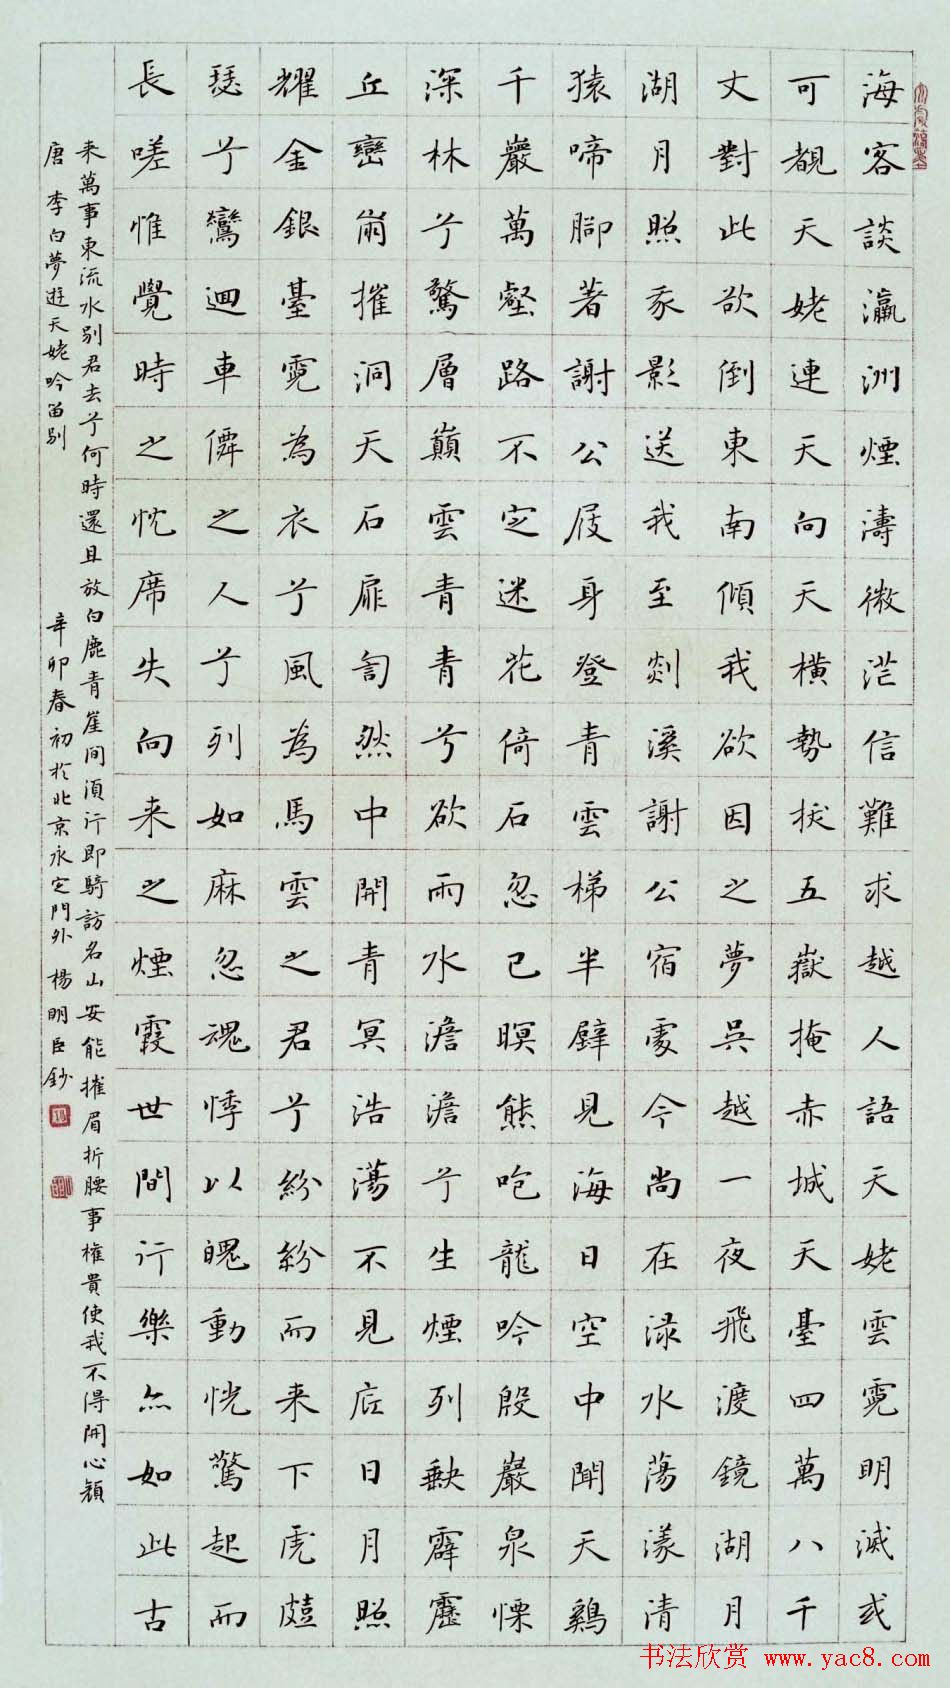 海客談瀛洲煙濤微茫信難求越人語天姥雲霓明滅或
可覩天姥連天向天橫勢拔五嶽掩赤城天臺四萬八千
丈對此欲倒東南傾我欲因之夢吳越一夜飛渡鏡湖月
湖月照我影送我至剡溪謝公宿處今尚在淥水蕩漾清
猿啼腳著謝公屐身登青雲梯半壁見海日空中聞天鷄
千巖萬壑路不定迷花倚石忽已暝熊咆龍吟殷巖泉慄
深林兮驚層巔雲青青兮欲雨水澹澹兮生煙列缺霹靂
丘巒崩摧洞天石扉訇然中開青冥浩蕩不見底日月照
耀金銀臺霓為衣兮風為馬雲之君兮紛紛而来下虎鼓
瑟兮鸞迴車僊之人兮列如麻忽魂悸以魄動恍驚起而
長嗟惟覺時之枕席失向来之煙霞世間行樂亦如此古
来萬事東流水别君去兮何時還且放白鹿青崖間須行即騎訪名山安能摧眉折腰事權貴使我不得開心顏
唐 李白夢遊天姥吟留别 辛卯春初於北京永定門外 楊明臣鈔
书法欣赏 www.yac8.com